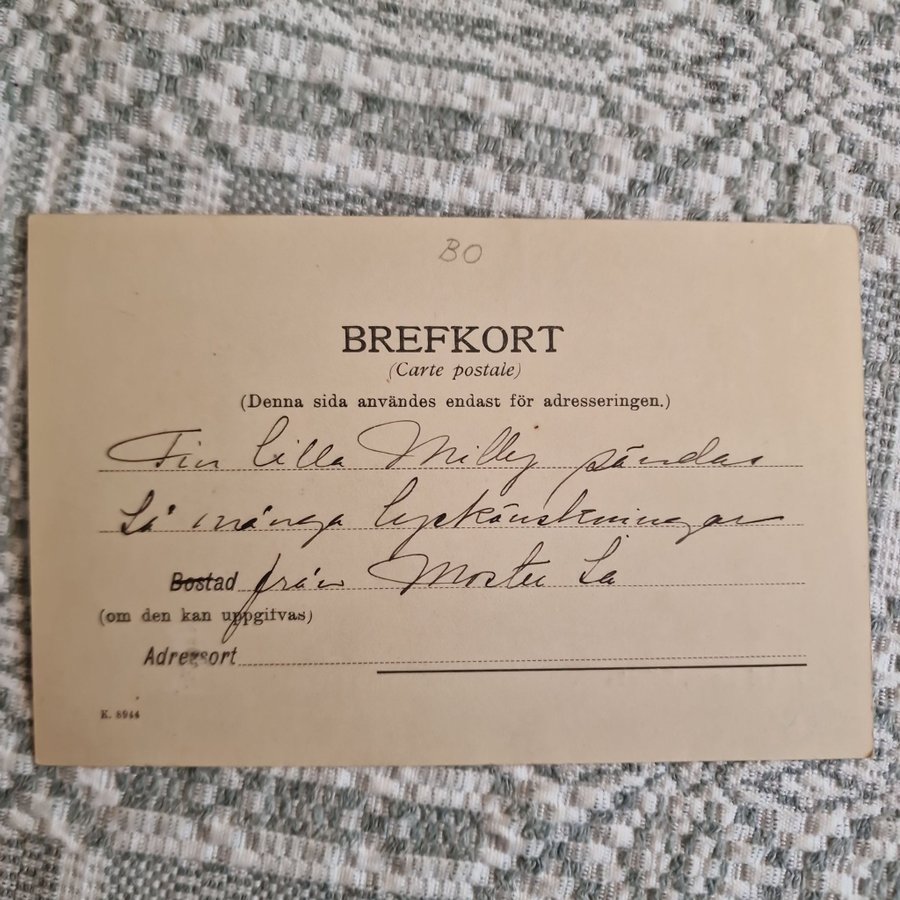 BO
BREFKORT
(Carte postale)
(Denna sida användes endast för adresseringen.)
Tin lilla Milly sändas
så många lyckönskningar
Bostad från Moster
(om den kan uppgifvas)
Adressort
K. 8944